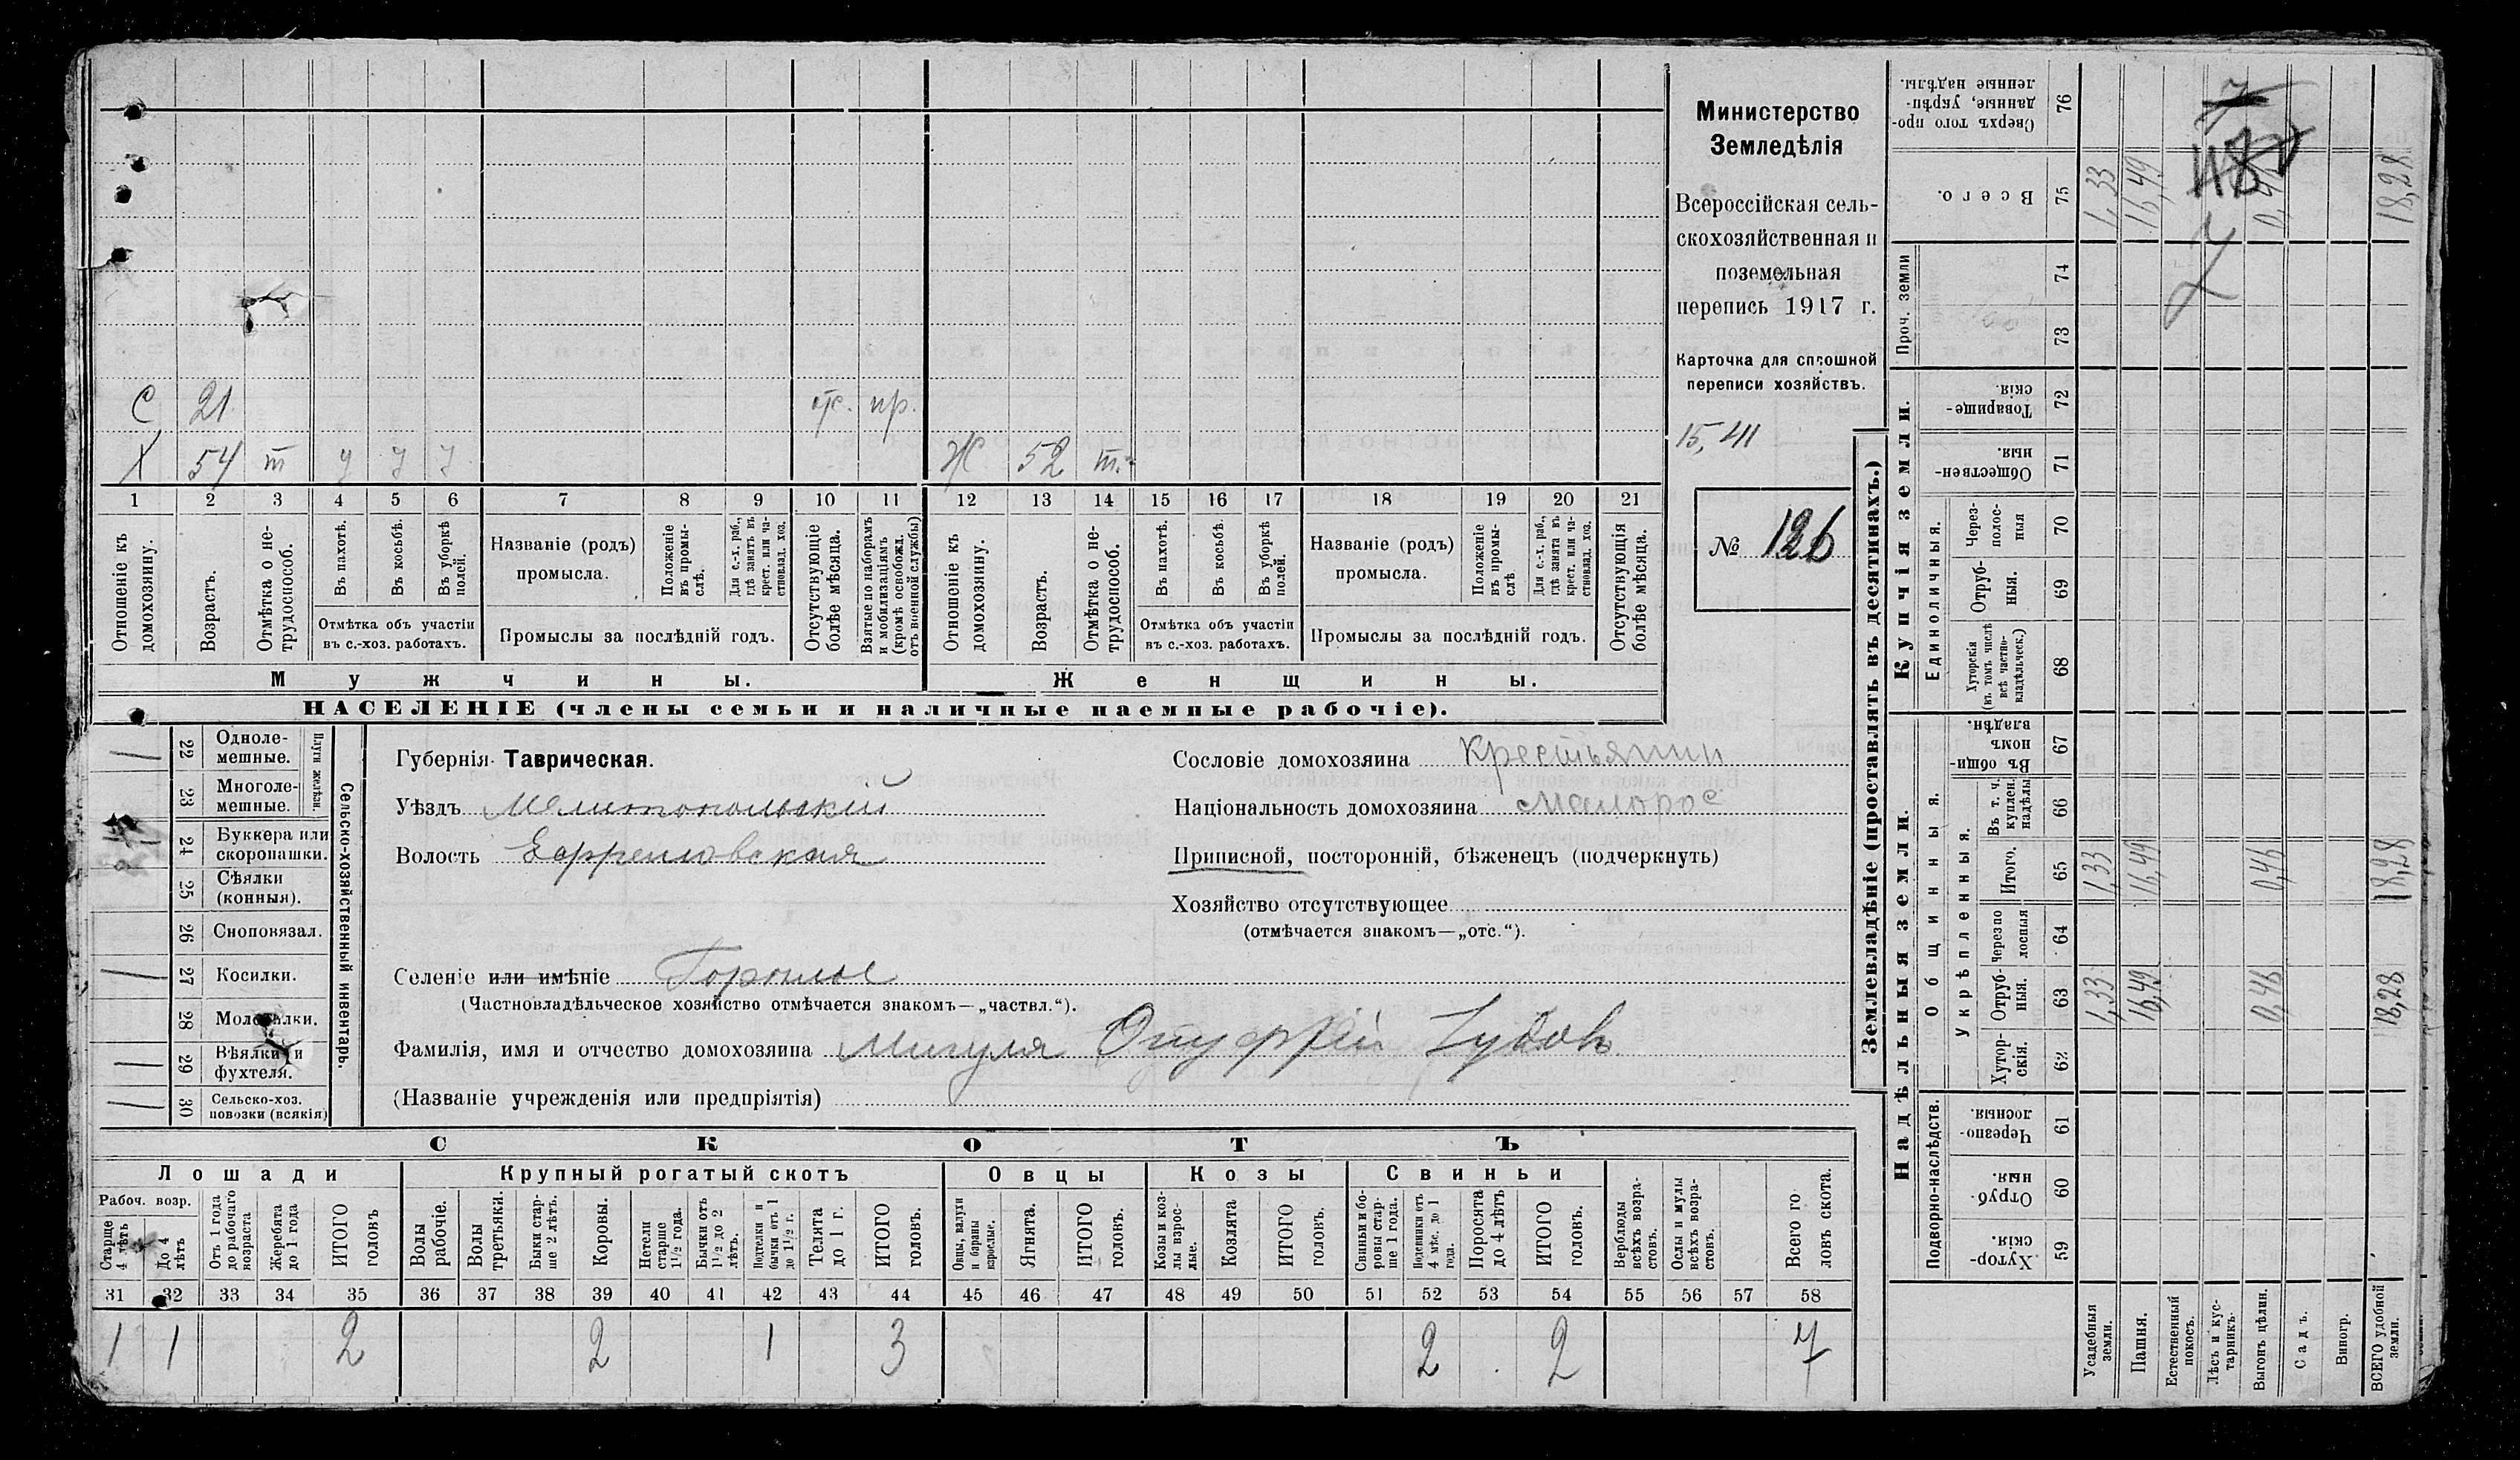 С 21 от. пр.
Х 54 т у у у Ж 52 т.
1 2 3 4 5 6 7 8 9 10 11 12 13 14 15 16 17 18 19 20 21
Отношеніе къ домохозяину.
Возрастъ.
Отмѣтка о не-
трудоспособ.
Въ пахотѣ.
Въ косьбѣ.
Въ уборкѣ
полей.
Отмѣтка объ участіи
въ с.-хоз. работахъ.
Названіе (родъ)
промысла.
Положеніе
въ промы-
слѣ.
Для с.-х. раб.,
гдѣ занятъ въ
крест. или ча-
стновлад. хоз.
Промыслы за послѣдній годъ.
Отсутствующіе
болѣе мѣсяца.
Взятые по наборамъ
и мобилизаціямъ
(кромѣ освобожд.
отъ военной службы)
Отношеніе къ
домохозяину.
Возрастъ.
Отмѣтка о не-
трудоспособ.
Въ пахотѣ.
Въ косьбѣ.
Въ уборкѣ
полей.
Отмѣтка объ участіи
въ с.-хоз. работахъ.
Названіе (родъ)
промысла.
Положеніе
въ промы-
слѣ
Для с.-х. раб.,
гдѣ занята въ
крест. или ча-
стновлад. хоз.
Промыслы за послѣдній годъ.
Отсутствующія
болѣе мѣсяца.
Мужчины.
Женщины.
НАСЕЛЕНІЕ (члены семьи и наличные наемные рабочіе).
Министерство
Земледѣлія
Всероссійская сель-
скохозяйственная и
поземельная
перепись 1917 г.
Карточка для сплошной
переписи хозяйствъ.
15,411
№ 126
22 Одноле-
мешные.
23 Многоле-
мешные.
Плуги желѣзн.
24 Буккера или
скоропашки.
25 Сѣялки
(конныя).
26 Сноповязал.
27 Косилки.
28 Молотилки.
29 Вѣялки и
фухтеля.
30 Сельско-хоз.
повозки (всякія)
Сельско-хозяйственный инвентарь.
Губернія Таврическая.
Уѣздъ Мелитопольскій
Волость Ефремовская
Селеніе или имѣніе
(Частновладѣльческое хозяйство отмѣчается знакомъ—„частвл.“).
Фамилія, имя и отчество домохозяина Мигуля
(Названіе учрежденія или предпріятія)
Сословіе домохозяина крестьянин
Національность домохозяина малорос
Приписной, посторонній, бѣженецъ (подчеркнуть)
Хозяйство отсутствующее
(отмѣчается знакомъ—„отс.“).
СКОТЪ
Лошади
Рабоч. возр.
Старше
4 лѣтъ
До 4
лѣтъ
Отъ 1 года
до рабочаго
возраста
Жеребята
до 1 года
ИТОГО
головъ
Крупный рогатый скотъ
Волы
рабочіе.
Волы
третьяки.
Быки стар-
ше 2 лѣтъ.
Коровы.
Нетели
старше
1½ года.
Бычки отъ
1½ до 2
лѣтъ.
Подтелки и
бычки отъ 1
до 1½ г.
Телята
до 1 г.
ИТОГО
головъ.
Овцы
Овцы, валухи
и бараны
взрослые.
Ягнята.
ИТОГО
головъ.
Козы
Козы и коз-
лы взрос-
лые.
Козлята
ИТОГО
головъ.
Свиньи
Свиньи и бо-
ровы стар-
ше 1 года.
Подсвинки отъ
4 мѣс. до 1
года.
Поросята
до 4 лѣтъ
ИТОГО
головъ.
Верблюды
всѣхъ возра-
стовъ.
Ослы и мулы
всѣхъ возра-
стовъ.
Всего го
ловъ скота.
31 32 33 34 35 36 37 38 39 40 41 42 43 44 45 46 47 48 49 50 51 52 53 54 55 56 57 58
1 1 2 2 1 3 2 2 7
Землевладѣніе (проставлять въ десятинахъ.)
Сверхъ того про-
данные, укрѣп-
ленные надѣлы.
76
Всего.
75
1,33 16,49 18,28
Проч. земли
74
73
Купчія земли.
Товарище-
скія.
72
Обществен-
ныя.
71
Единоличныя.
Через-
полос-
ныя
70
Отруб-
ныя.
69
Хуторскія
(въ томъ числѣ
всѣ частно-
владѣльческ.)
68
Надѣльныя земли.
Общинныя.
Въ общи
номъ
владѣн.
67
Укрѣпленныя.
Въ т. ч.
куплен.
надѣлы
66
Итого.
65
1,33 16,49 0,46 18,28
Черезпо
лосныя
64
Отруб-
ныя.
63
1,33 16,49 0,46 18,28
Хутор-
скія.
62
Подворно-наслѣдств.
Черезпо-
лосныя.
61
Отруб-
ныя.
60
Хутор-
скія.
59
Усадебныя
земли.
Пашня.
Естественный
покосъ.
Лѣсъ и кус-
тарникъ.
Выгонъ цѣлин.
Садъ.
Виногр.
ВСЕГО удобной
земли.